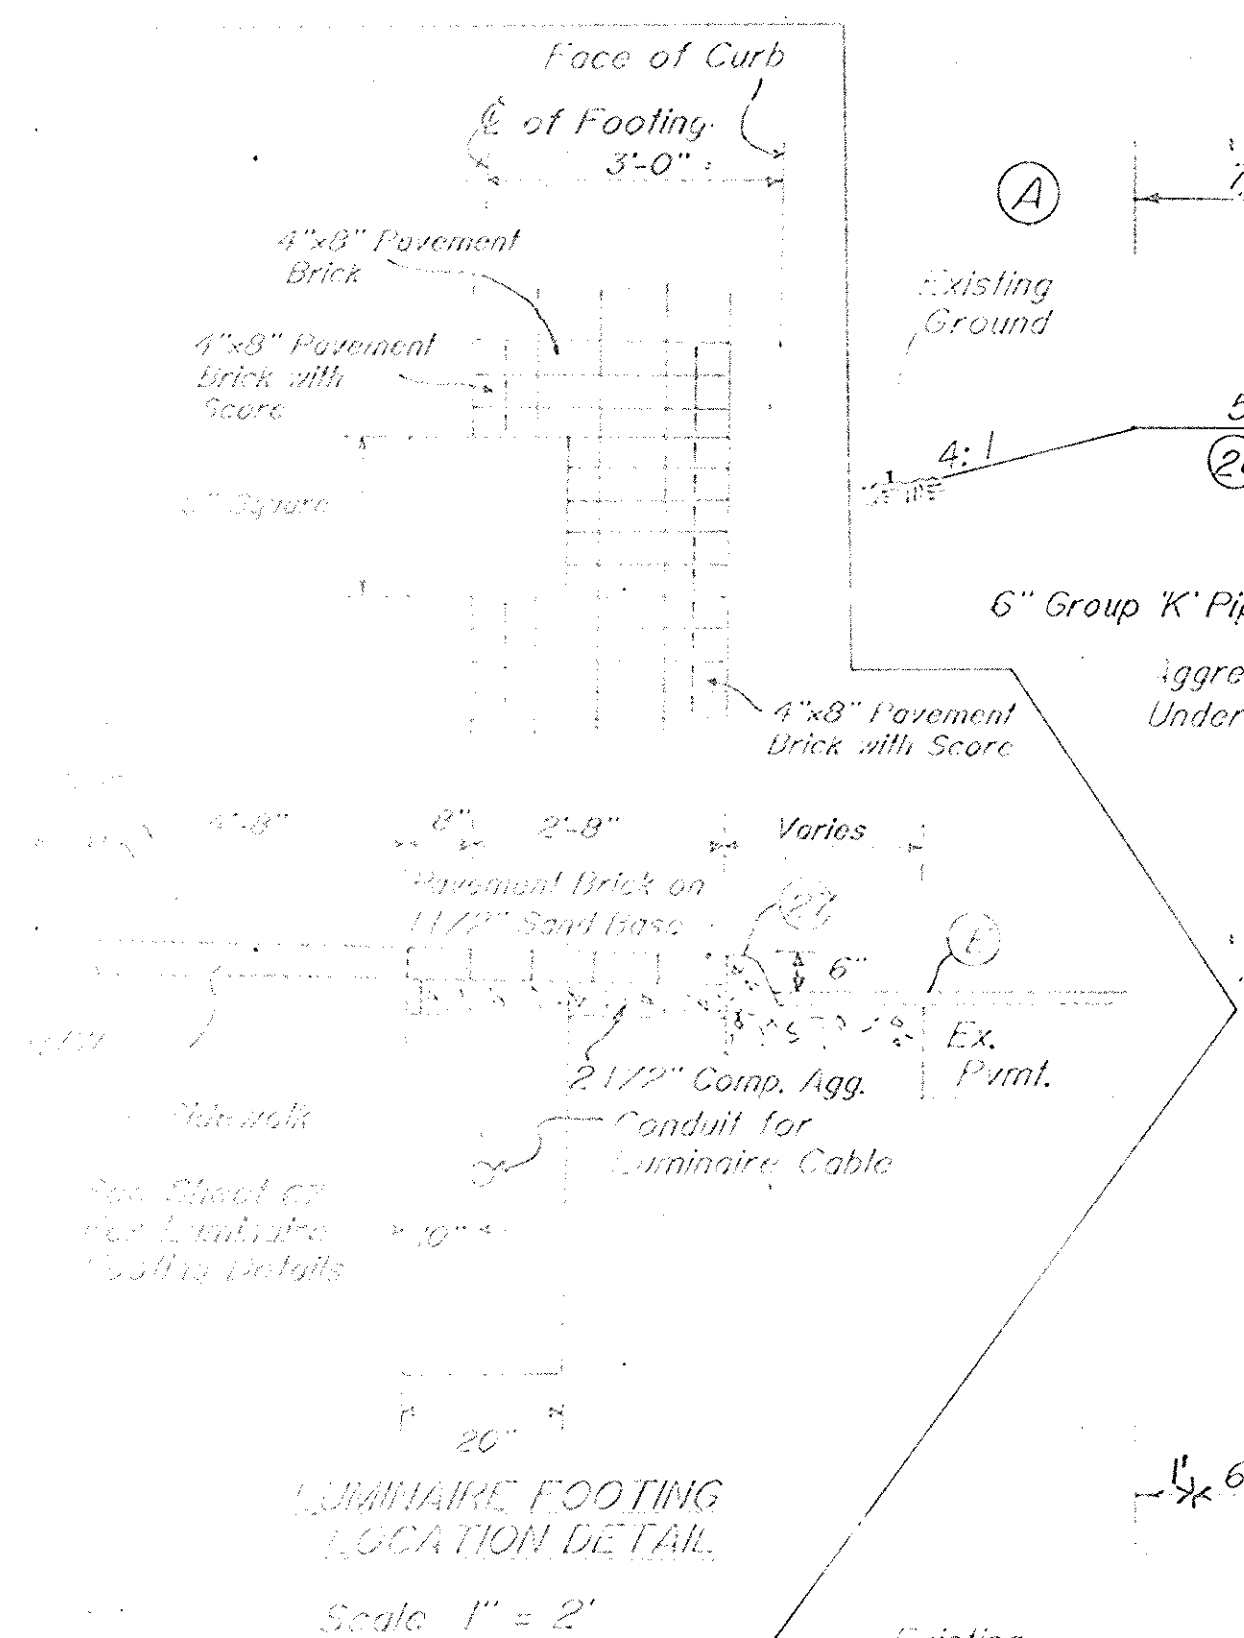 Face of Curb
℄ of Footing
3'-0"
4"x8" Pavement
Brick
4"x8" Pavement
Brick with
Score
Square
4"x8" Pavement
Brick with Score
4'-8"
8"
2'-8"
Varies
Pavement Brick on
1 1/2" Sand Base
27
E
6"
Ex.
Pvmt.
2 1/2" Comp. Agg.
Conduit for
Luminaire Cable
Sidewalk
See Sheet
For Luminaire
Footing Details
10"
20"
LUMINAIRE FOOTING
LOCATION DETAIL
Scale 1" = 2'
A
7
Existing
Ground
4:1
5
6" Group 'K' Pip
Aggre
Under
1'
6
Existing